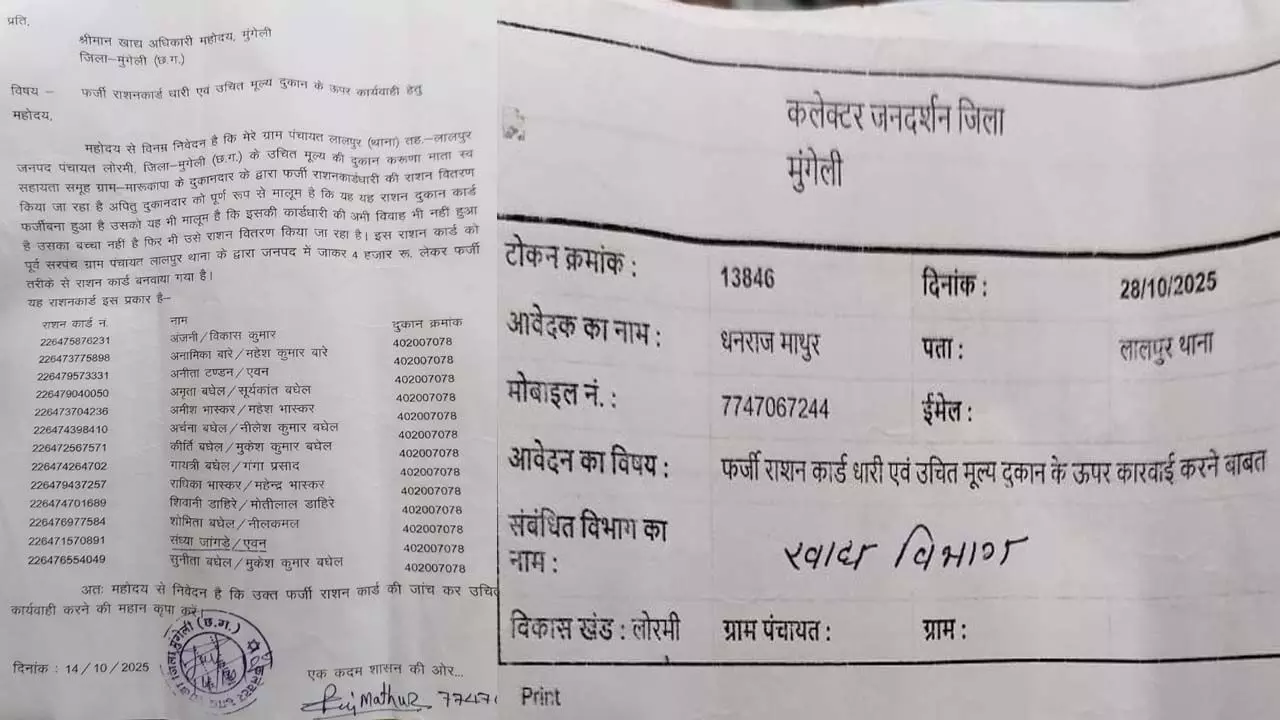 प्रति,
श्रीमान खाद्य अधिकारी महोदय, मुंगेली
जिला–मुंगेली (छ.ग.)
विषय – फर्जी राशनकार्ड धारी एवं उचित मूल्य दुकान के ऊपर कार्यवाही हेतु
महोदय,
महोदय से विनम्र निवेदन है कि मेरे ग्राम पंचायत लालपुर (थाना) तह.–लालपुर
जनपद पंचायत लोरमी, जिला–मुंगेली (छ.ग.) के उचित मूल्य की दुकान करूणा माता स्व
सहायता समूह ग्राम–मारूकापा के दुकानदार के द्वारा फर्जी राशनकार्डधारी की राशन वितरण
किया जा रहा है अपितु दुकानदार को पूर्ण रूप से मालूम है कि यह यह राशन दुकान कार्ड
फर्जीबना हुआ है उसको यह भी मालूम है कि इसकी कार्डधारी की अभी विवाह भी नहीं हुआ
है उसका बच्चा नही है फिर भी उसे राशन वितरण किया जा रहा है। इस राशन कार्ड को
पूर्व सरपंच ग्राम पंचायत लालपुर थाना के द्वारा जनपद में जाकर 4 हजार रू. लेकर फर्जी
तरीके से राशन कार्ड बनवाया गया है।
यह राशनकार्ड इस प्रकार है–
राशन कार्ड न. नाम दुकान क्रमांक
226475876231 अंजनी/विकास कुमार 402007078
226473775898 अनामिका बारे/महेश कुमार बारे 402007078
226479573331 अनीता टण्डन/एवन 402007078
226479040050 अमृता बघेल/सूर्यकांत बघेल 402007078
226473704236 अमीश भास्कर/महेश भास्कर 402007078
226474398410 अर्चना बघेल/नीलेश कुमार बघेल 402007078
226472567571 कीर्ति बघेल/मुकेश कुमार बघेल 402007078
226474264702 गायत्री बघेल/गंगा प्रसाद 402007078
226479437257 राधिका भास्कर/महेन्द्र भास्कर 402007078
226474701689 शिवानी डाहिरे/मोतीलाल डाहिरे 402007078
226476977584 शोभिता बघेल/नीलकमल 402007078
226471570891 संध्या जांगड़े/एवन 402007078
226476554049 सुनीता बघेल/मुकेश कुमार बघेल 402007078
अतः महोदय से निवेदन है कि उक्त फर्जी राशन कार्ड की जांच कर उचित
कार्यवाही करने की महान कृपा करें।
दिनांक : 14/10/2025
एक कदम शासन की ओर...
Mathur 7747
कलेक्टर जनदर्शन जिला
मुंगेली
टोकन क्रमांक : 13846 दिनांक : 28/10/2025
आवेदक का नाम : धनराज माथुर पता : लालपुर थाना
मोबाइल नं. : 7747067244 ईमेल :
आवेदन का विषय : फर्जी राशन कार्ड धारी एवं उचित मूल्य दुकान के ऊपर कारवाई करने बाबत
संबंधित विभाग का
नाम : खाद्य विभाग
विकास खंड : लोरमी ग्राम पंचायत : ग्राम :
Print